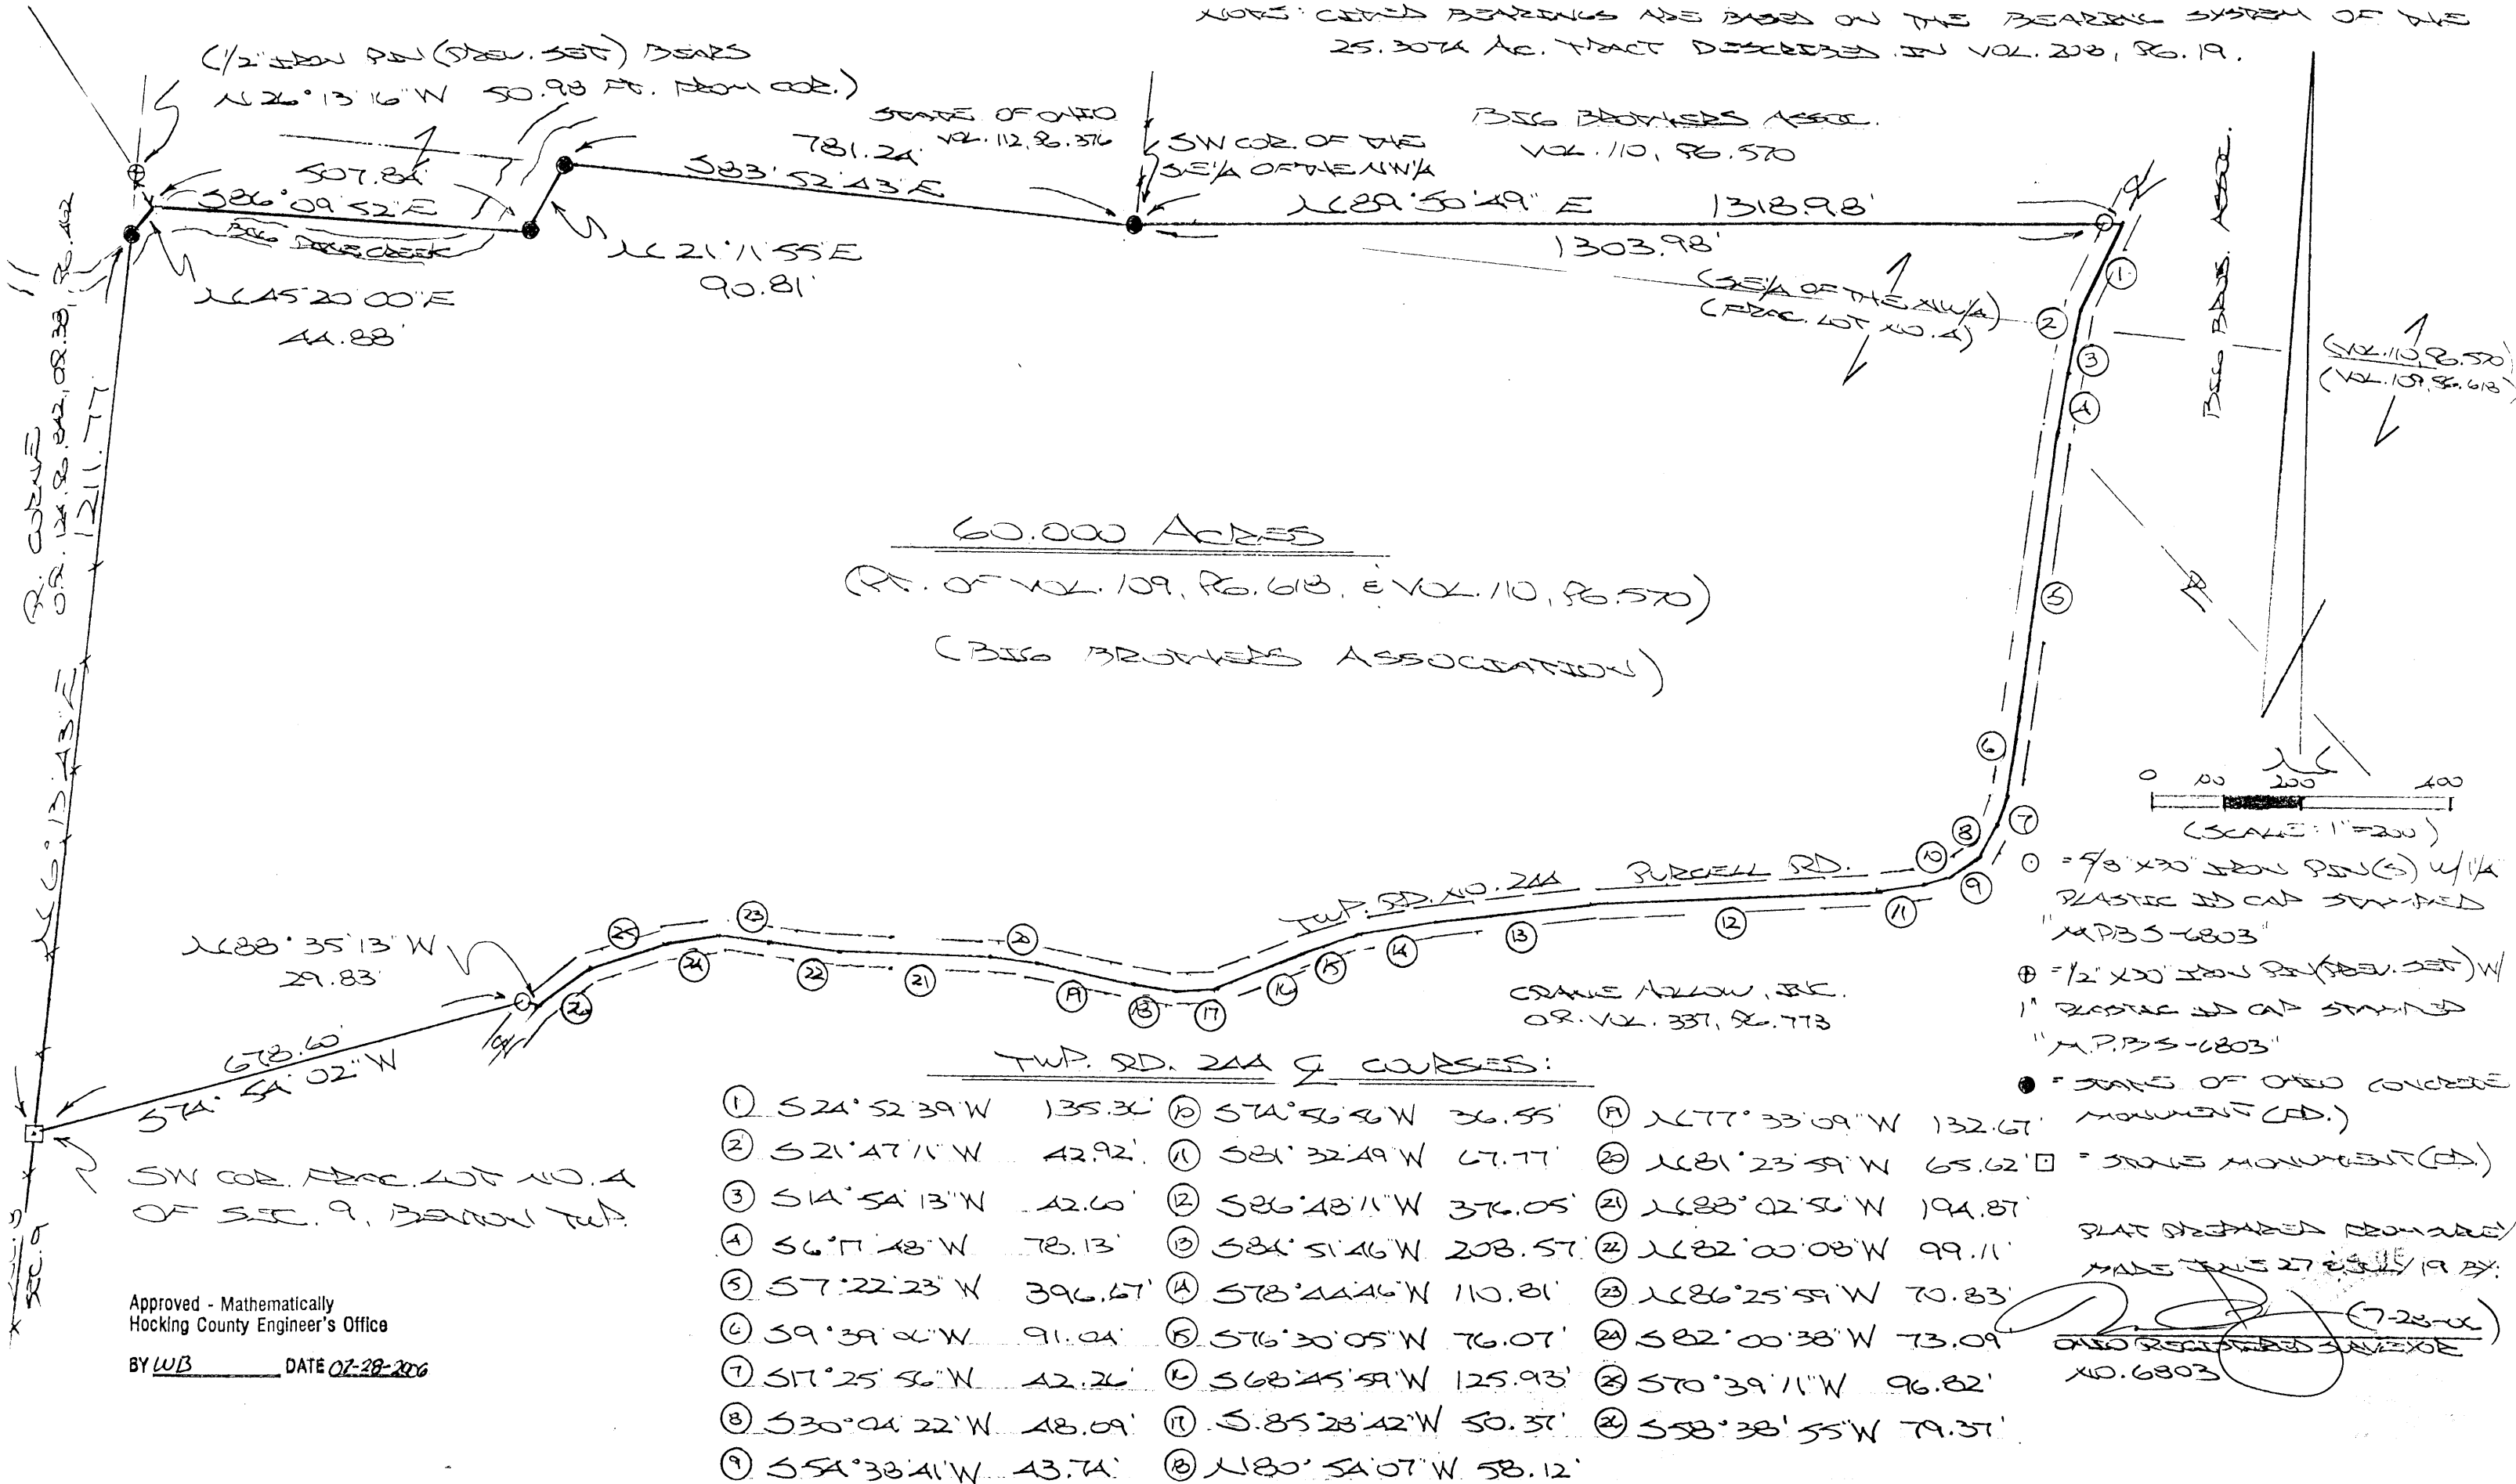 NOTE: CITED BEARINGS ARE BASED ON THE BEARING SYSTEM OF THE
25.3074 AC. TRACT DESCRIBED IN VOL. 208, PG. 19.
(1/2" IRON PIN (PREV. SET) BEARS
N 26° 13' 16" W 50.98 FT. FROM COR.)
STATE OF OHIO
VOL. 112, PG. 376
SW COR. OF THE
SE1/4 OF THE NW1/4
BIG BROTHERS ASSOC.
VOL. 110, PG. 570
507.84'
S86° 09' 52" E
BIG PINE CREEK
781.24'
S83° 52' 43" E
N89° 50' 49" E 1318.98'
1303.98'
N21° 11' 55" E
90.81'
N45° 20' 00" E
44.88'
(SE1/4 OF THE NW1/4)
(FRAC. LOT NO. 4)
BIG BROS. ASSOC.
(VOL. 110, PG. 570)
(VOL. 109, PG. 618)
1211.77'
N 6° 13' 43" E
60.000 ACRES
(PT. OF VOL. 109, PG. 618, & VOL. 110, PG. 570)
(BIG BROTHERS ASSOCIATION)
1
2
3
4
5
6
7
8
9
10
11
12
13
14
15
16
17
18
19
20
21
22
23
24
25
26
TWP. RD. NO. 244 PURCELL RD.
N
0 100 200 400
(SCALE: 1"=200')
⊙ = 5/8" X 30" IRON PIN(S) W/ 1 1/4"
PLASTIC ID CAP STAMPED
"M.P.B S-6803"
⊕ = 1/2" X 30" IRON PIN (PREV. SET) W/
1" PLASTIC ID CAP STAMPED
"M.P.B S-6803"
● = STATE OF OHIO CONCRETE
MONUMENT (FD.)
⊡ = STONE MONUMENT (FD.)
N88° 35' 13" W
29.83'
678.60'
S74° 54' 02" W
CRANE HOLLOW, INC.
O.R. VOL. 337, PG. 773
SW COR. FRAC. LOT NO. 4
OF SEC. 9, BENTON TWP.
SEC. 9
TWP. RD. 244 ℄ COURSES:
① S24° 52' 39" W 135.36'
② S21° 47' 11" W 42.92'
③ S14° 54' 13" W 42.60'
④ S6° 17' 48" W 78.13'
⑤ S7° 22' 23" W 396.67'
⑥ S9° 39' 06" W 91.04'
⑦ S17° 25' 56" W 42.26'
⑧ S30° 04' 22" W 48.09'
⑨ S54° 38' 41" W 43.74'
⑩ S74° 56' 56" W 36.55'
⑪ S81° 32' 49" W 67.77'
⑫ S86° 48' 11" W 376.05'
⑬ S84° 51' 46" W 208.57'
⑭ S78° 44' 46" W 110.81'
⑮ S76° 30' 05" W 76.07'
⑯ S68° 45' 59" W 125.93'
⑰ S85° 28' 42" W 50.37'
⑱ N80° 54' 07" W 58.12'
⑲ N77° 33' 09" W 132.67'
⑳ N81° 23' 59" W 65.62'
㉑ N88° 02' 56" W 194.87'
㉒ N82° 00' 08" W 99.11'
㉓ N86° 25' 59" W 70.83'
㉔ S82° 00' 38" W 73.09'
㉕ S70° 39' 11" W 96.82'
㉖ S58° 38' 55" W 79.37'
PLAT PREPARED FROM SURVEY
MADE JUNE 27 & JULY 19 BY:
(7-28-06)
OHIO REGISTERED SURVEYOR
NO. 6803
Approved - Mathematically
Hocking County Engineer's Office
BY WB DATE 07-28-2006